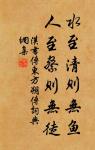 水至清則無魚
人至察則無徒
漢書傳東方朔傳詞典
網集